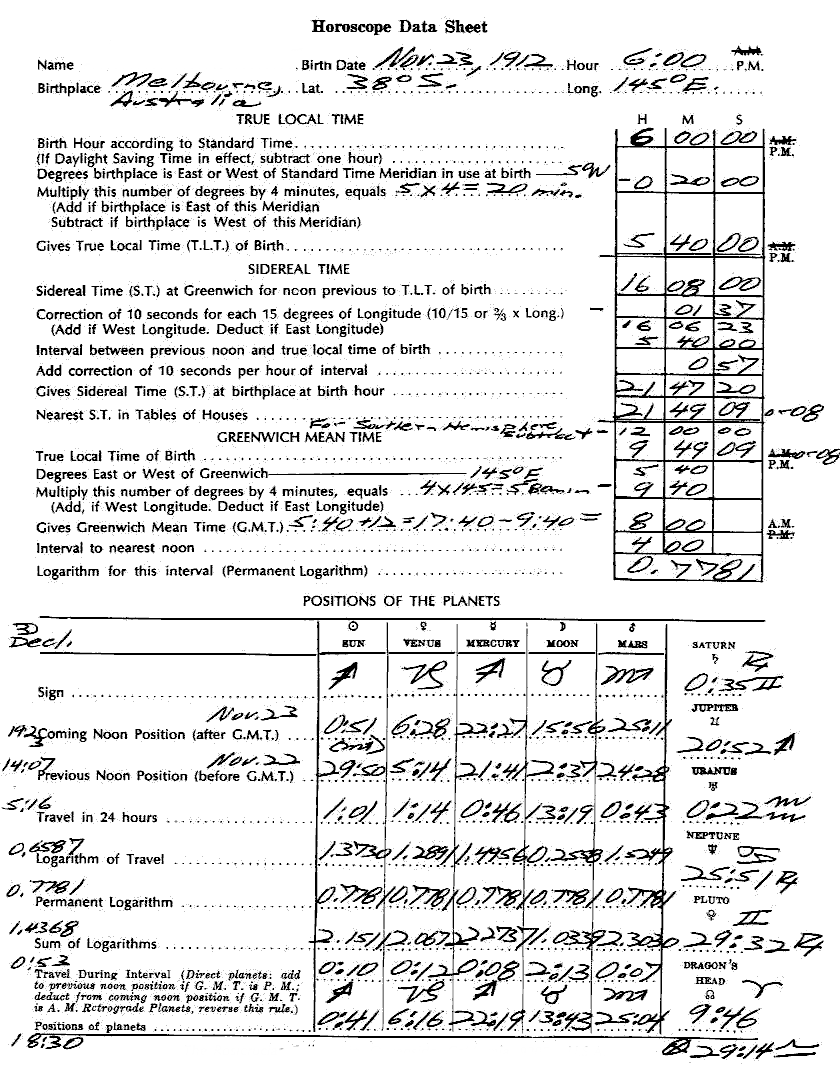 Horoscope Data Sheet
Name Birth Date Nov. 23, 1912 Hour 6:00 A.M. P.M.
Birthplace Melbourne, Australia Lat. 38° S. Long. 145° E.
TRUE LOCAL TIME H M S
Birth Hour according to Standard Time 6 00 00 A.M. P.M.
(If Daylight Saving Time in effect, subtract one hour)
Degrees birthplace is East or West of Standard Time Meridian in use at birth 5W
Multiply this number of degrees by 4 minutes, equals 5 x 4 = 20 min. -0 20 00
(Add if birthplace is East of this Meridian
Subtract if birthplace is West of this Meridian)
Gives True Local Time (T.L.T.) of Birth 5 40 00 A.M. P.M.
SIDEREAL TIME
Sidereal Time (S.T.) at Greenwich for noon previous to T.L.T. of birth 16 08 00
Correction of 10 seconds for each 15 degrees of Longitude (10/15 or ⅔ x Long.) - 01 37
(Add if West Longitude. Deduct if East Longitude) 16 06 23
Interval between previous noon and true local time of birth 5 40 00
Add correction of 10 seconds per hour of interval 0 57
Gives Sidereal Time (S.T.) at birthplace at birth hour 21 47 20
Nearest S.T. in Tables of Houses 21 49 09 0-08
For Southern Hemisphere subtract - 12 00 00
GREENWICH MEAN TIME
True Local Time of Birth 9 49 09 A.M. P.M. 0-08
Degrees East or West of Greenwich 145° E 5 40
Multiply this number of degrees by 4 minutes, equals 4 x 145 = 580 min - 9 40
(Add, if West Longitude. Deduct if East Longitude)
Gives Greenwich Mean Time (G.M.T.) 5:40 + 12 = 17:40 - 9:40 = 8 00 A.M. P.M.
Interval to nearest noon 4 00
Logarithm for this interval (Permanent Logarithm) 0.7781
POSITIONS OF THE PLANETS
☽ Decl. ☉ SUN ♀ VENUS ☿ MERCURY ☽ MOON ♂ MARS SATURN ♄ ℞
Sign ♐ ♑ ♐ ♉ ♏ 0:35 ♊
Nov. 23 JUPITER ♃
19:23 Coming Noon Position (after G.M.T.) 0:51 6:28 22:27 15:56 25:11 20:52 ♐
Nov. 22
14:07 Previous Noon Position (before G.M.T.) 29:50 5:14 21:41 2:37 24:28 URANUS ♅
5:16 Travel in 24 hours 1:01 1:14 0:46 13:19 0:43 0:22 ♒
NEPTUNE ♆ ♋
0.6587 Logarithm of Travel 1.3730 1.2891 1.4956 0.2558 1.5249 25:51 ℞
0.7781 Permanent Logarithm 0.7781 0.7781 0.7781 0.7781 0.7781 PLUTO ♀ ♊
1.4368 Sum of Logarithms 2.1511 2.0672 2.2737 1.0339 2.3030 29:32 ℞
0:53 Travel During Interval (Direct planets: add 0:10 0:12 0:08 2:13 0:07 DRAGON'S
to previous noon position if G. M. T. is P. M.; ♐ ♑ ♐ ♉ ♏ HEAD ♈
deduct from coming noon position if G. M. T. ☊
is A. M. Retrograde Planets, reverse this rule.)
Positions of planets 0:41 6:16 22:19 13:43 25:04 9:46
18:30 ⊗ 29:14 ♎